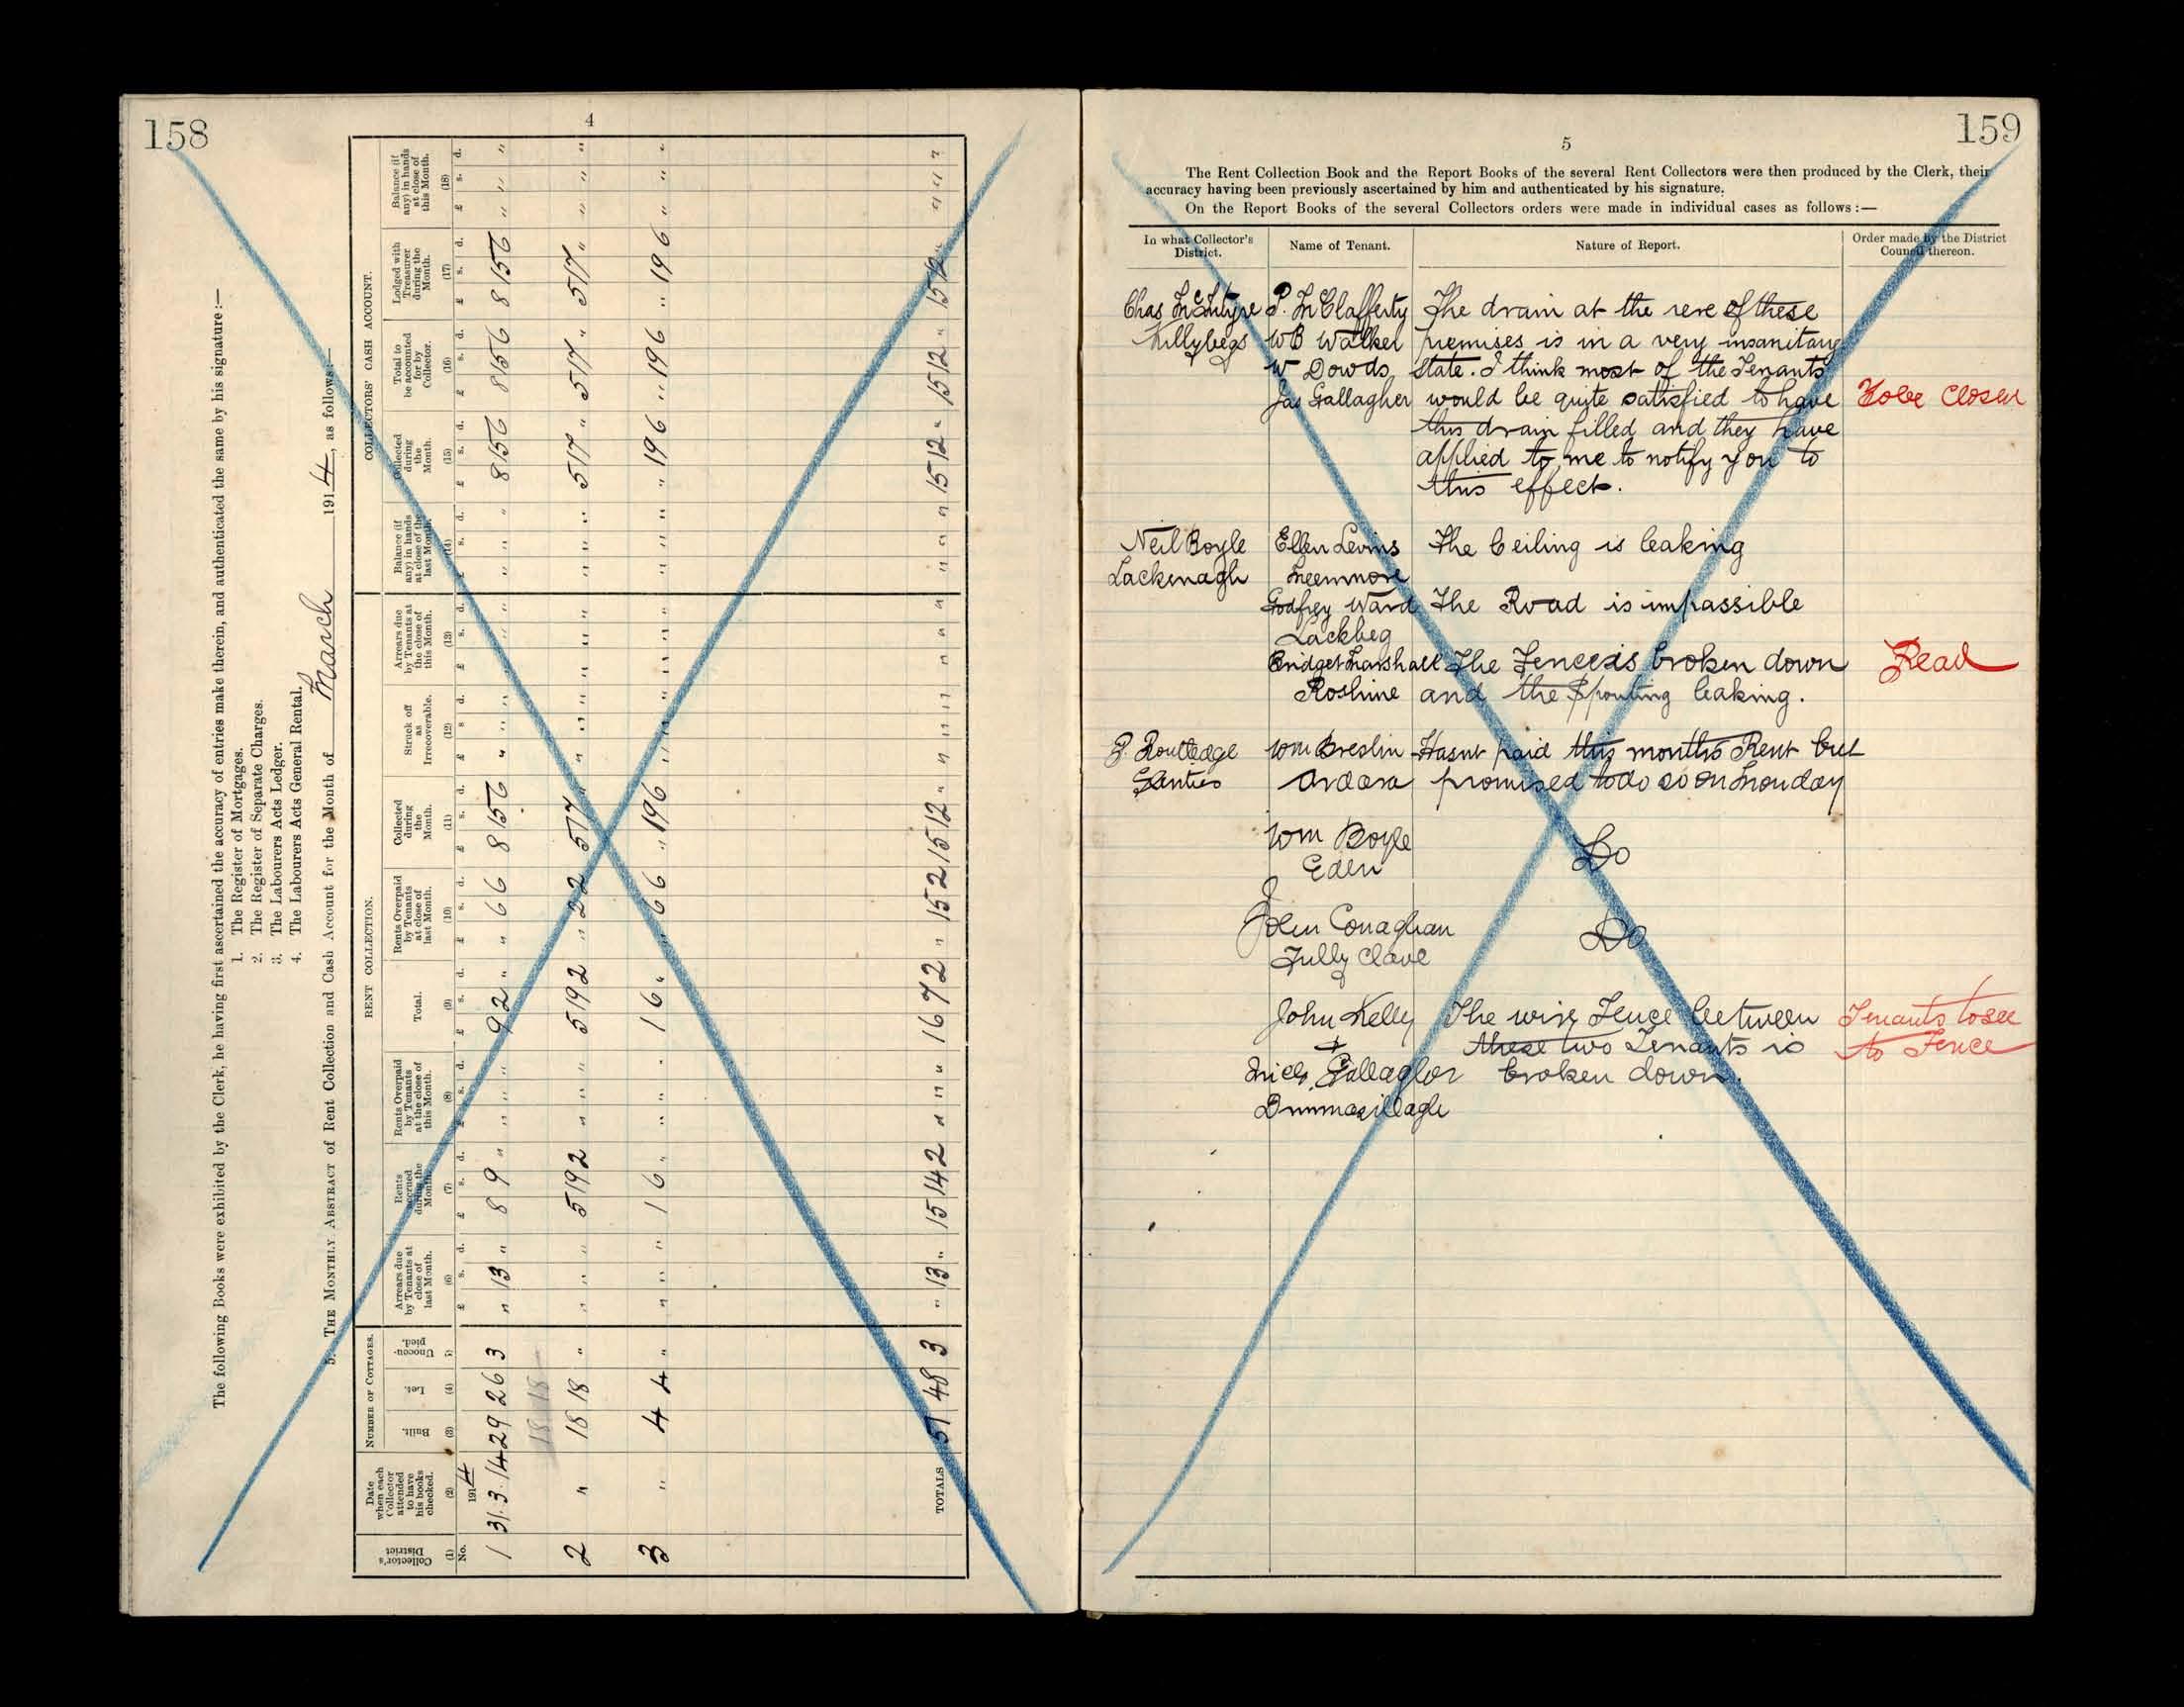 158
4
The following Books were exhibited by the Clerk, he having first ascertained the accuracy of entries make therein, and authenticated the same by his signature :—
1. The Register of Mortgages.
2. The Register of Separate Charges.
3. The Labourers Acts Ledger.
4. The Labourers Acts General Rental.
5. THE MONTHLY ABSTRACT of Rent Collection and Cash Account for the Month of March 1914, as follows:—
NUMBER OF COTTAGES. RENT COLLECTION. COLLECTORS' CASH ACCOUNT.
Collector's District (1)
Date when each Collector attended to have his books checked. (2)
Built. (3)
Let. (4)
Unoccu-pied. (5)
Arrears due by Tenants at close of last Month. (6)
Rents accrued during the Month. (7)
Rents Overpaid by Tenants at the close of this Month. (8)
Total. (9)
Rents Overpaid by Tenants at close of last Month. (10)
Collected during the Month. (11)
Struck off as Irrecoverable. (12)
Arrears due by Tenants at the close of this Month. (13)
Balance (if any) in hands at close of the last Month. (14)
Collected during the Month. (15)
Total to be accounted for by Collector. (16)
Lodged with Treasurer during the Month. (17)
Balance (if any) in hands at close of this Month. (18)
No. 1914 £ s. d. £ s. d. £ s. d. £ s. d. £ s. d. £ s. d. £ s. d. £ s. d. £ s. d. £ s. d. £ s. d. £ s. d. £ s. d.
1 31.3.14 29 26 3 " 13 " 8 9 " " " " 9 2 " " 6 6 8 15 6 " " " " " " " " " 8 15 6 8 15 6 8 15 6 " " "
18 18
2 " 18 18 " " " " 5 19 2 " " " 5 19 2 " 2 2 5 17 " " " " " " " " " " 5 17 " 5 17 " 5 17 " " " "
3 " 4 4 " " " " 1 6 " " " " 1 6 " " 6 6 " 19 6 " " " " " " " " " " 19 6 " 19 6 " 19 6 " " "
TOTALS 51 48 3 " 13 " 15 14 2 " " " 16 7 2 " 15 2 15 12 " " " " " " " " " " 15 12 " 15 12 " 15 12 " " " "
159
5
The Rent Collection Book and the Report Books of the several Rent Collectors were then produced by the Clerk, their
accuracy having been previously ascertained by him and authenticated by his signature.
On the Report Books of the several Collectors orders were made in individual cases as follows :—
In what Collector's District. Name of Tenant. Nature of Report. Order made by the District Council thereon.
Chas McIntyre P. McClafferty The drain at the rere of these
Killybegs WB Walker premises is in a very insanitary
W Dowds state. I think most of the Tenants
Jas Gallagher would be quite satisfied to have To be closed
this drain filled and they have
applied to me to notify you to
this effect.
Neil Boyle Ellen Levins The Ceiling is leaking
Lackenagh Meenmore
Godfrey Ward The Road is impassible
Lackbeg
Bridget Marshall The Fence is broken down Read
Roshine and the Spouting leaking.
P. Routledge Wm Breslin Hasnt paid this months Rent but
Glenties Ardara promised to do so on Monday
Wm Boyle Do
Eden
John Conaghan Do
Tully Clave
John Kelly The wire Fence between Tenants to see
+ these two Tenants is to Fence
Mich. Gallagher broken down.